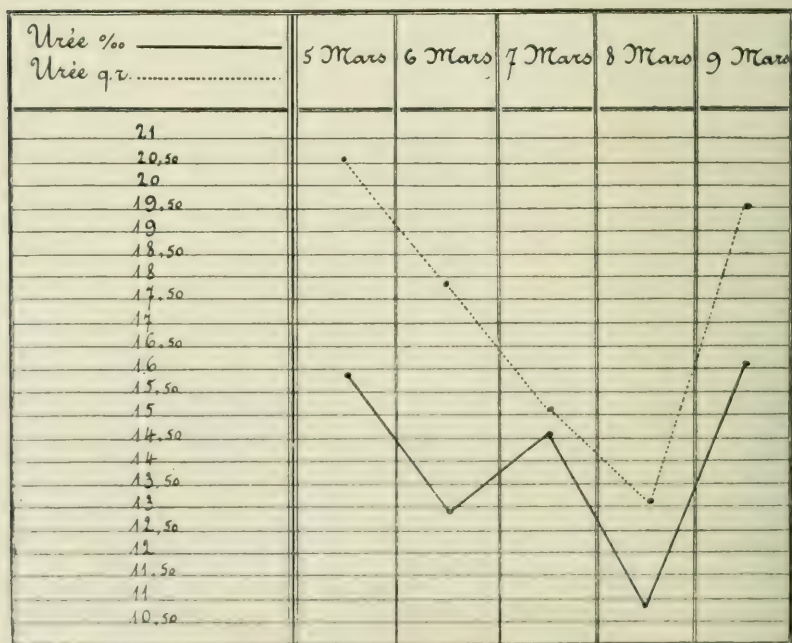 Urée ‰
Urée q.r.
5 Mars 6 Mars 7 Mars 8 Mars 9 Mars
21
20,50
20
19,50
19
18,50
18
17,50
17
16,50
16
15,50
15
14,50
14
13,50
13
12,50
12
11,50
11
10,50